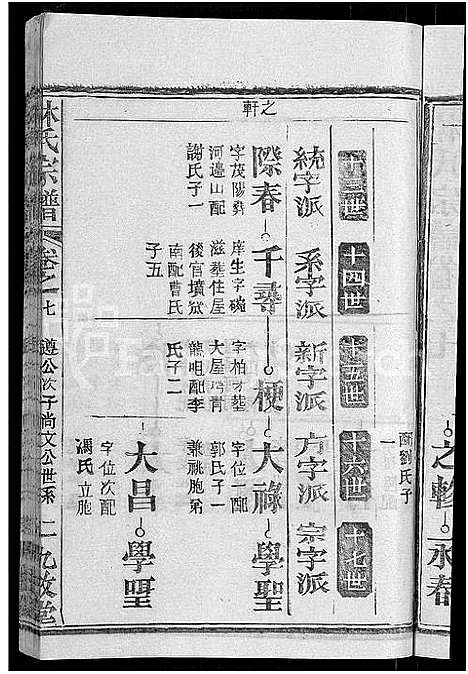 配劉氏子
一
之軫
永春
之軒
十三世
十四世
十五世
十六世
十七世
統字派
系字派
新字派
方字派
宗字派
際春
千尋
梗
大祿
學聖
字茂陽葬
河邊山配
謝氏子一
庠生字碗
滋葬住屋
後官墳坡
南配曹氏
子五
字柏才葬
大屋塆背
龍咀配李
氏子二
字位一配
郭氏子一
兼祧胞弟
大昌
學聖
字位次配
馮氏立胞
林氏宗譜
卷之七
遵公次子尚文公世系
二
九牧堂